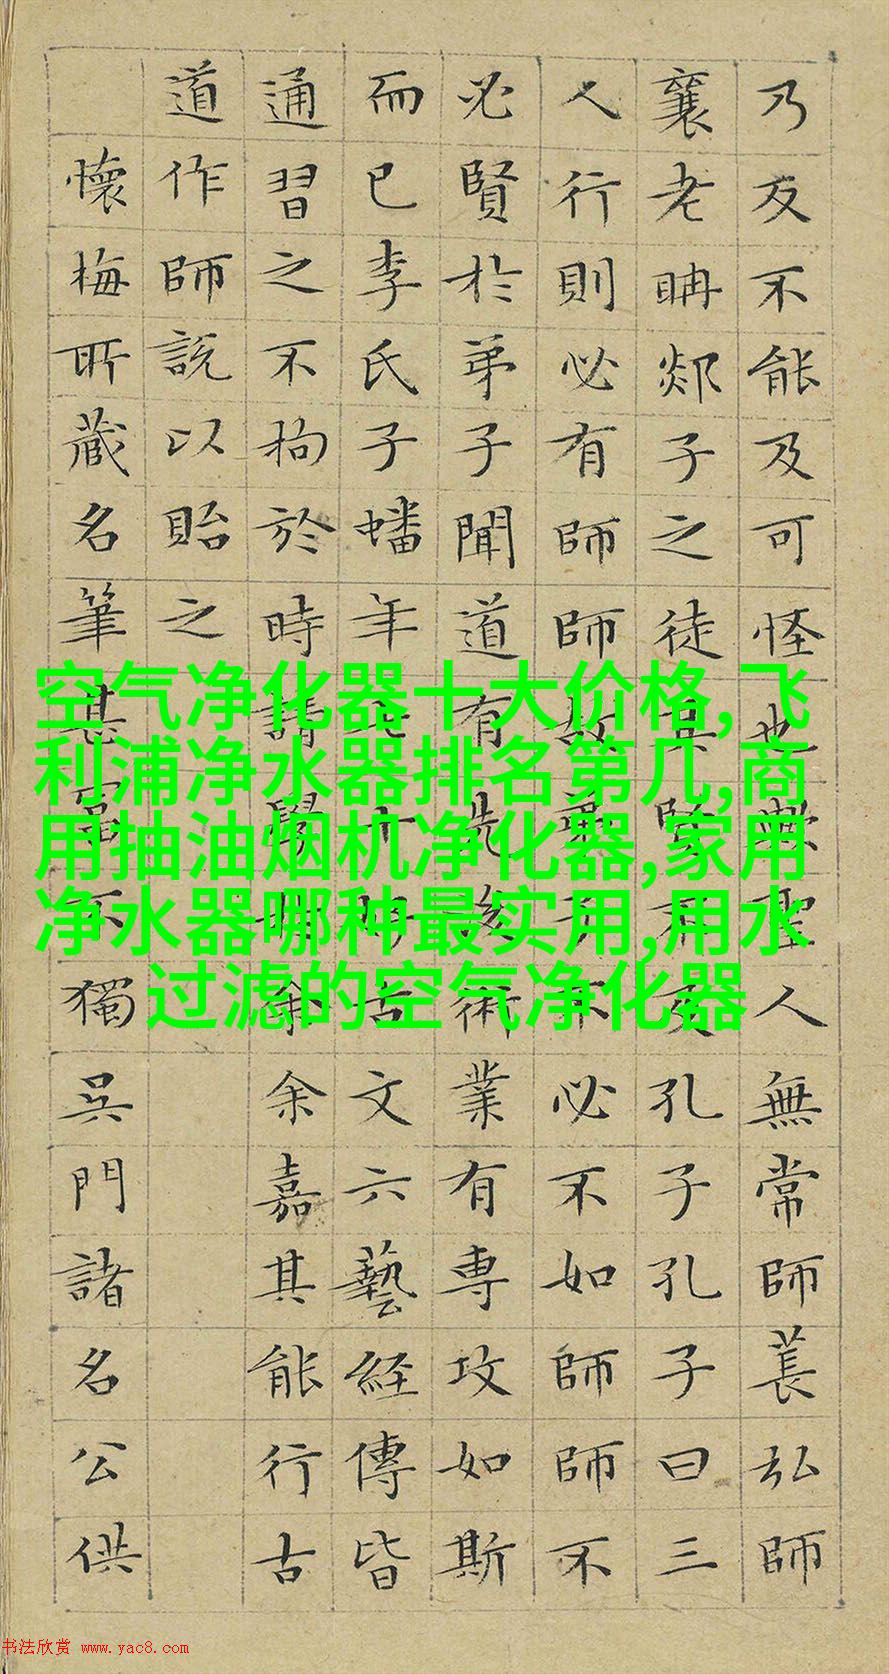 空气净化器十大价格,飞
利浦净水器排名第几,商
用抽油烟机净化器,家用
净水器哪种最实用,用水
过滤的空气净化器
乃反不能及可怪也歟聖人無常師萇弘師
襄老聃郯子之徒其賢不及孔子孔子曰三
人行則必有師師故弟子不必不如師師不
必賢於弟子聞道有先後術業有專攻如斯
而已李氏子蟠年十七好古文六藝經傳皆
通習之不拘於時請學於余余嘉其能行古
道作師說以貽之
懷梅所藏名筆甚富不獨吳門諸名公供
书法欣赏 www.yac8.com